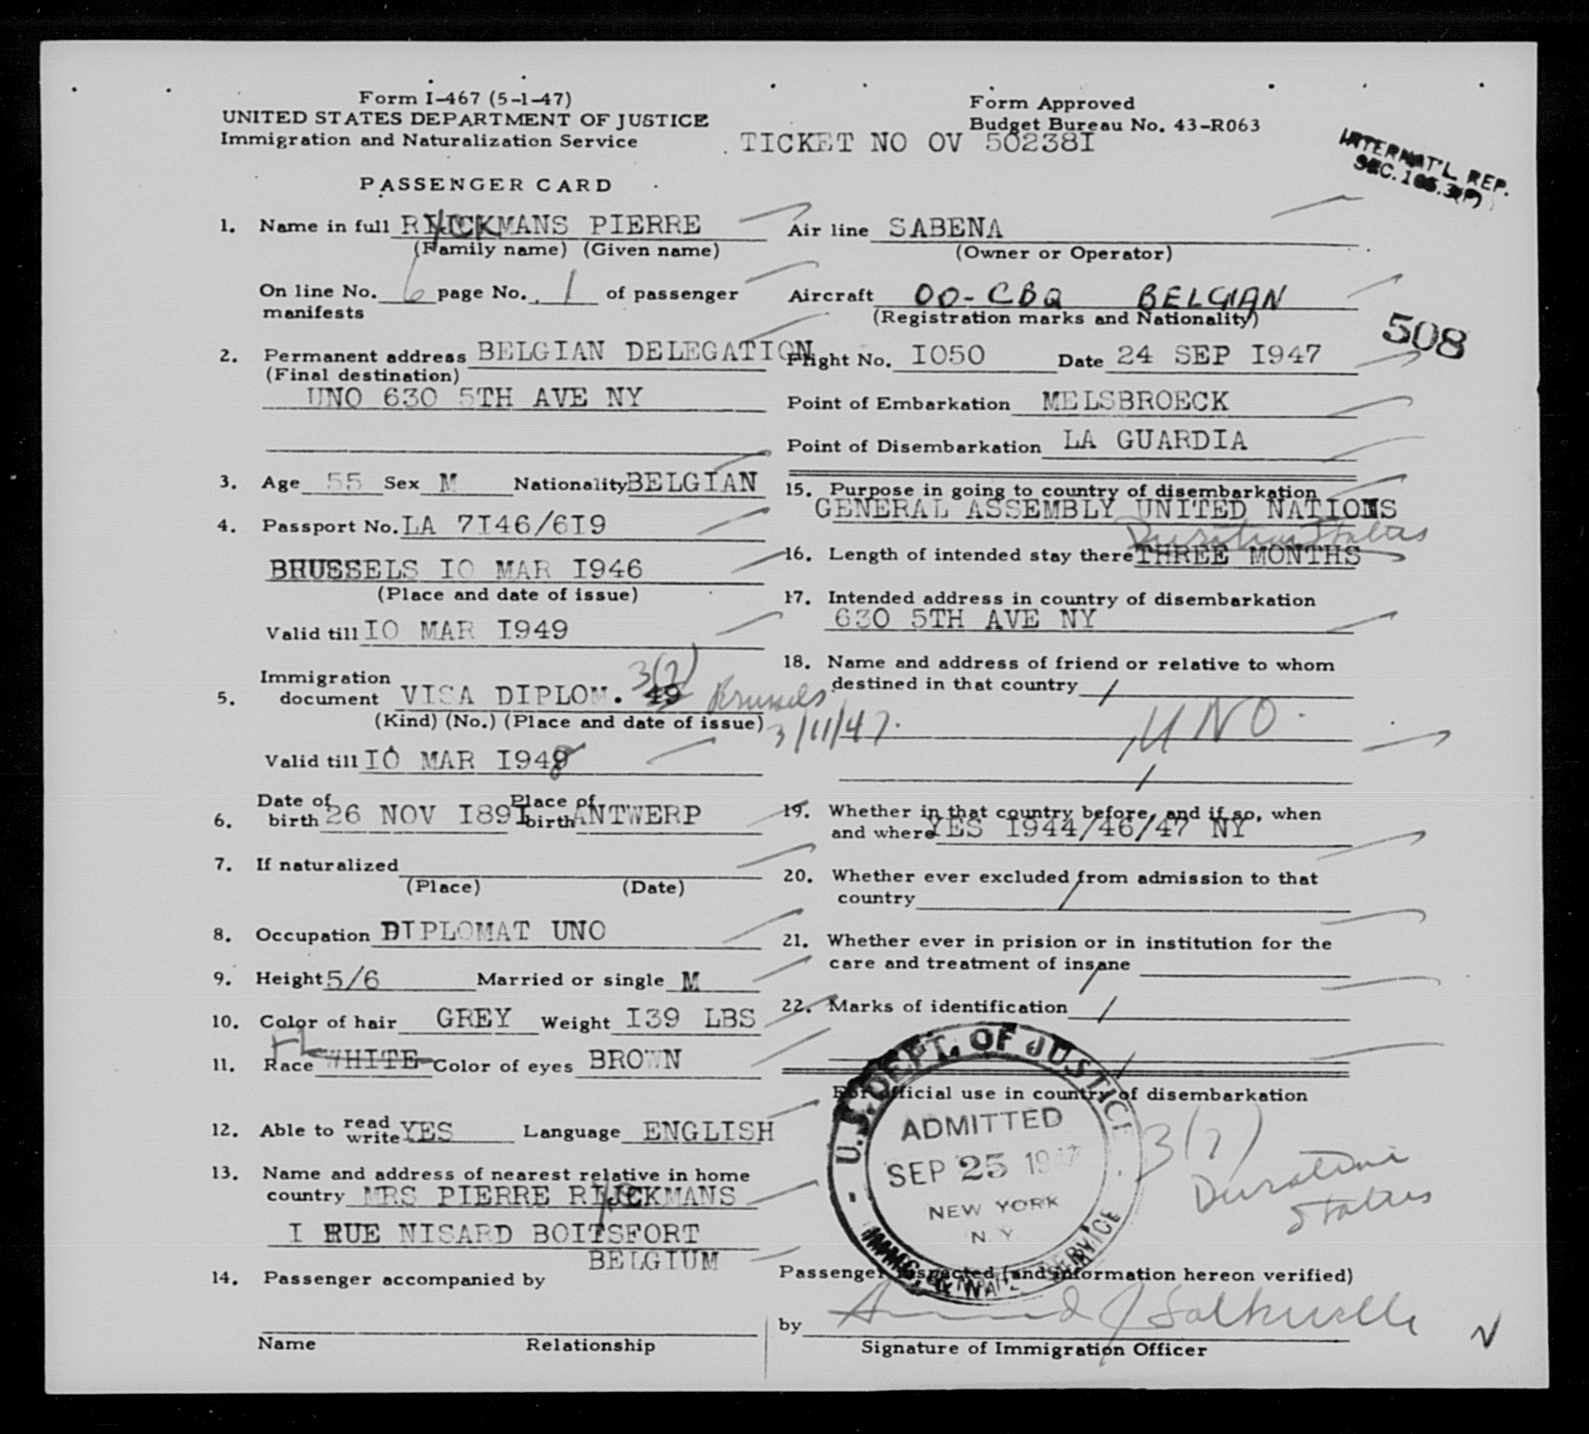 Form I-467 (5-1-47)
UNITED STATES DEPARTMENT OF JUSTICE
Immigration and Naturalization Service
Form Approved
Budget Bureau No. 43-R063
TICKET NO OV 50238I
INTERNAT'L. REP.
SEC. 105.3(P)
PASSENGER CARD
1. Name in full RYCKMANS PIERRE
(Family name) (Given name)
On line No. 6 page No. 1 of passenger
manifests
2. Permanent address BELGIAN DELEGATION
(Final destination)
UNO 630 5TH AVE NY
3. Age 55 Sex M Nationality BELGIAN
4. Passport No. LA 7I46/6I9
BRUSSELS IO MAR I946
(Place and date of issue)
Valid till IO MAR I949
Immigration
5. document VISA DIPLOM. 49 3(7) Brussels
(Kind) (No.) (Place and date of issue) 3/11/47.
Valid till IO MAR I948
6. Date of birth 26 NOV I89I Place of birth ANTWERP
7. If naturalized
(Place) (Date)
8. Occupation DIPLOMAT UNO
9. Height 5/6 Married or single M
10. Color of hair GREY Weight I39 LBS
11. Race WHITE Color of eyes BROWN
12. Able to read write YES Language ENGLISH
13. Name and address of nearest relative in home
country MRS PIERRE RYCKMANS
I RUE NISARD BOITSFORT
BELGIUM
14. Passenger accompanied by
Name Relationship
Air line SABENA
(Owner or Operator)
Aircraft OO-CBQ BELGIAN
(Registration marks and Nationality)
508
Flight No. I050 Date 24 SEP I947
Point of Embarkation MELSBROECK
Point of Disembarkation LA GUARDIA
15. Purpose in going to country of disembarkation
GENERAL ASSEMBLY UNITED NATIONS
Duration Status
16. Length of intended stay there THREE MONTHS
17. Intended address in country of disembarkation
630 5TH AVE NY
18. Name and address of friend or relative to whom
destined in that country /
UNO
/
19. Whether in that country before, and if so, when
and where YES I944/46/47 NY
20. Whether ever excluded from admission to that
country /
21. Whether ever in prision or in institution for the
care and treatment of insane /
22. Marks of identification /
/
For official use in country of disembarkation
U.S. DEPT. OF JUSTICE
ADMITTED
SEP 25 1947
NEW YORK
N. Y
IMMIG. & NATZ. SERVICE
3(7)
Duration
Status
Passenger inspected (and information hereon verified)
by
Signature of Immigration Officer